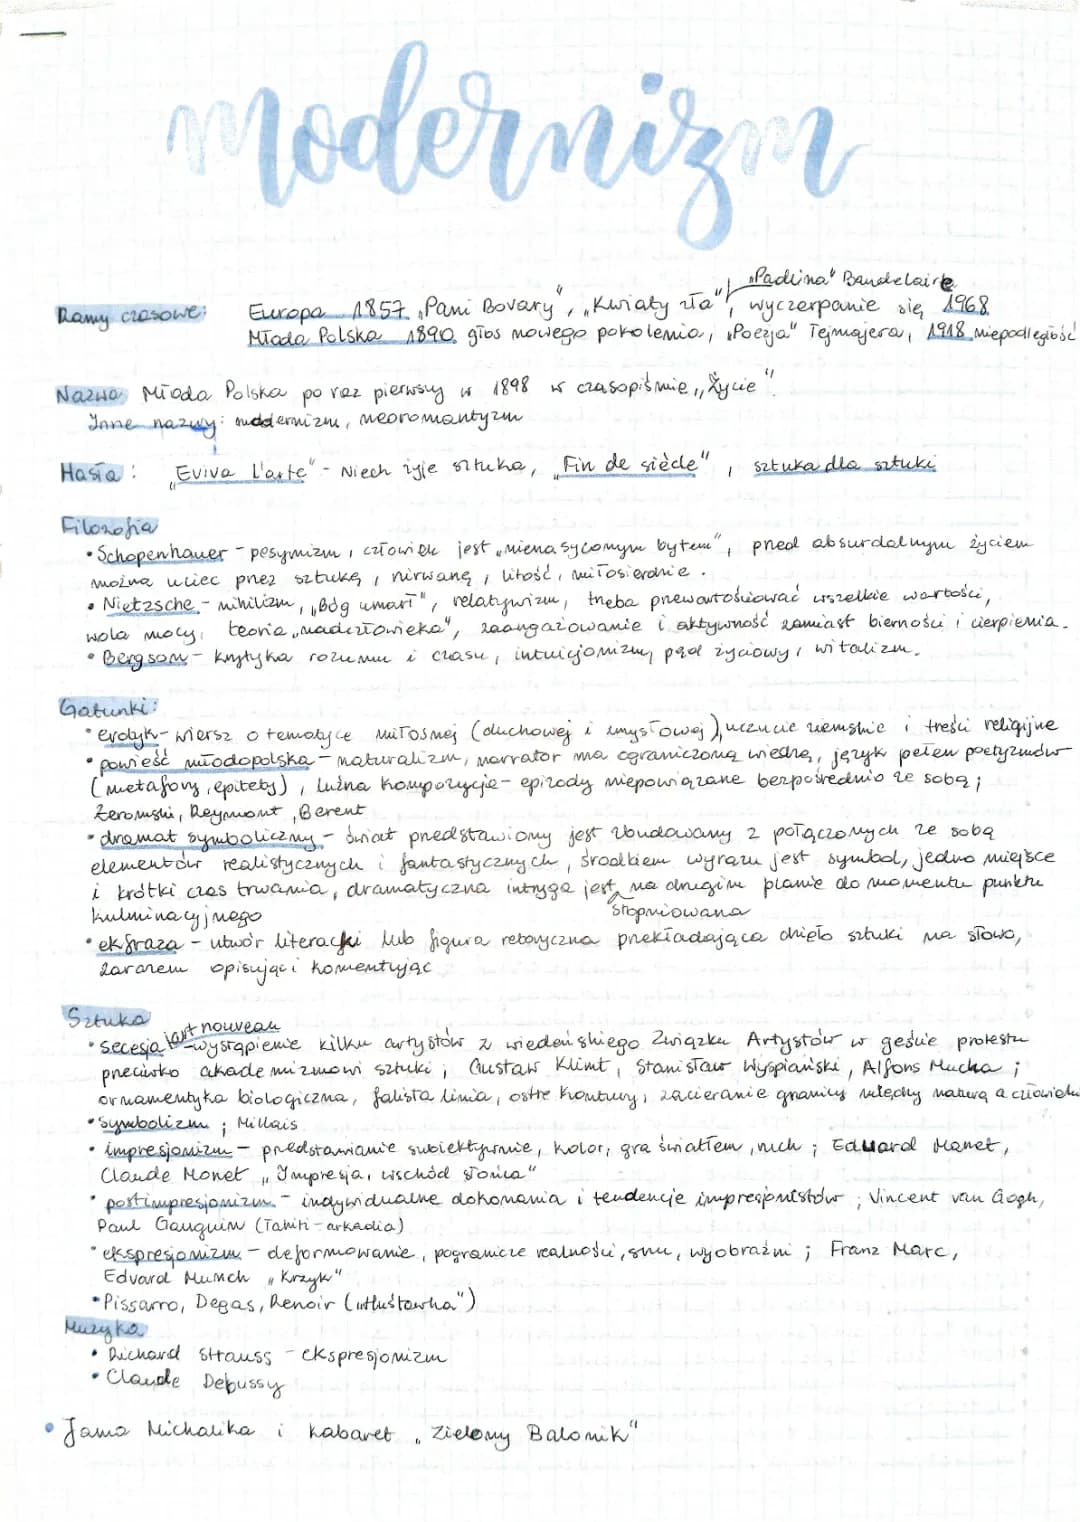 modernizm
„Padlina" Baudelaire
Ramy czasowe: Europa 1857 „Pani Bovary", „Kwiaty zła", wyczerpanie się 1968
Młoda Polska 1890 głos nowego pokolenia, „Poezja" Tejmajera, 1918 niepodległość
Nazwa Młoda Polska po raz pierwszy w 1898 w czasopiśmie „Życie"
Inne nazwy: modernizm, neoromantyzm
Hasła: „Eviva l'arte" - Niech żyje sztuka, „Fin de siècle", sztuka dla sztuki
Filozofia
• Schopenhauer - pesymizm, człowiek jest „nienasyconym bytem", przed absurdalnym życiem
można uciec przez sztukę, nirwanę, litość, miłosierdzie.
• Nietzsche - nihilizm, „Bóg umarł", relatywizm, trzeba przewartościować wszelkie wartości,
wola mocy, teoria „nadczłowieka", zaangażowanie i aktywność zamiast bierności i cierpienia.
• Bergson - krytyka rozumu i czasu, intuicjonizm, pęd życiowy, witalizm.
Gatunki:
• erotyk - wiersz o tematyce miłosnej (duchowej i zmysłowej), uczucie ziemskie i treści religijne
• powieść młodopolska - naturalizm, narrator ma ograniczoną wiedzę, język pełen poetyzmów
(metafory, epitety), luźna kompozycja - epizody niepowiązane bezpośrednio ze sobą;
Żeromski, Reymont, Berent
• dramat symboliczny - świat przedstawiony jest zbudowany z połączonych ze sobą
elementów realistycznych i fantastycznych, środkiem wyrazu jest symbol, jedno miejsce
i krótki czas trwania, dramatyczna intryga jest na drugim planie do momentu punktu
kulminacyjnego stopniowana
• ekfraza - utwór literacki lub figura retoryczna przekładająca dzieło sztuki na słowo,
zarazem opisując i komentując
Sztuka
• secesja / art nouveau - wystąpienie kilku artystów z wiedeńskiego Związku Artystów w geście protestu
przeciwko akademizmowi sztuki; Gustaw Klimt, Stanisław Wyspiański, Alfons Mucha;
ornamentyka biologiczna, falista linia, ostre kontury, zacieranie granicy między naturą a człowiekiem
• symbolizm; Millais
• impresjonizm - przedstawianie subiektywnie, kolor, gra światłem, ruch; Eduard Manet,
Claude Monet „Impresja, wschód słońca"
• postimpresjonizm - indywidualne dokonania i tendencje impresjonistów; Vincent van Gogh,
Paul Gauguin (Tahiti - arkadia)
• ekspresjonizm - deformowanie, pogranicze realności, snu, wyobraźni; Franz Marc,
Edvard Munch „Krzyk"
• Pissarro, Degas, Renoir („Huśtawka")
Muzyka
• Richard Strauss - ekspresjonizm
• Claude Debussy
• Jama Michalika i kabaret „Zielony Balonik"